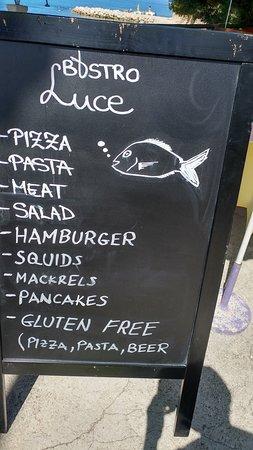 BISTRO
Luce
- PIZZA
- PASTA
- MEAT
- SALAD
- HAMBURGER
- SQUIDS
- MACKRELS
- PANCAKES
- GLUTEN FREE
(PIZZA, PASTA, BEER